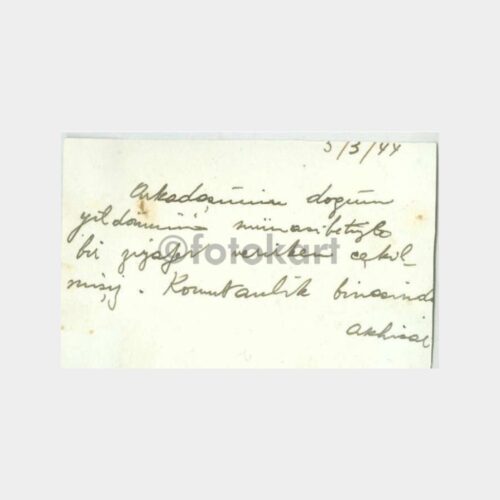 5/3/44
Arkadaşımın doğum
yıldönümü münasibetiyle
bir ziyafet verirken çekil-
mişiz. Komutanlık binasında
Akhisar
©fotokart